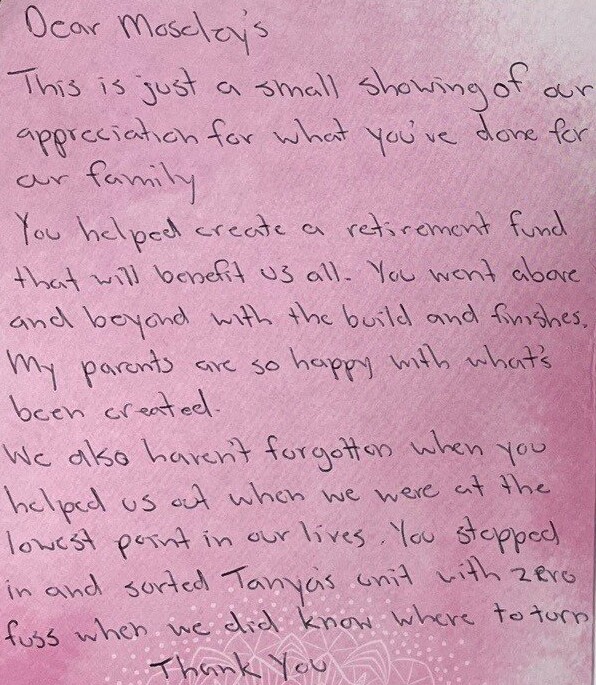 Dear Moseley's
This is just a small showing of our
appreciation for what you've done for
our family
You helped create a retirement fund
that will benefit us all. You went above
and beyond with the build and finishes.
My parents are so happy with what's
been created.
We also haven't forgotten when you
helped us out when we were at the
lowest point in our lives. You stepped
in and sorted Tanya's unit with zero
fuss when we did know where to turn
Thank You